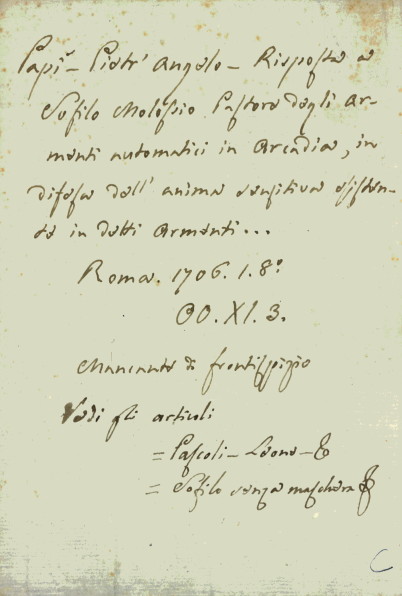 Papi - Pietr' Angelo - Risposta a
Sofilo Molossio Pastore degli Ar-
menti automatici in Arcadia, in
difesa dell' anima sensitiva esisten-
te in detti Armenti...
Roma. 1706. 1. 8.º
OO. XI. 3.
Mancante di frontispizio
Vedi gli articoli
= Pascoli - Leone -
= Sofilo senza maschera